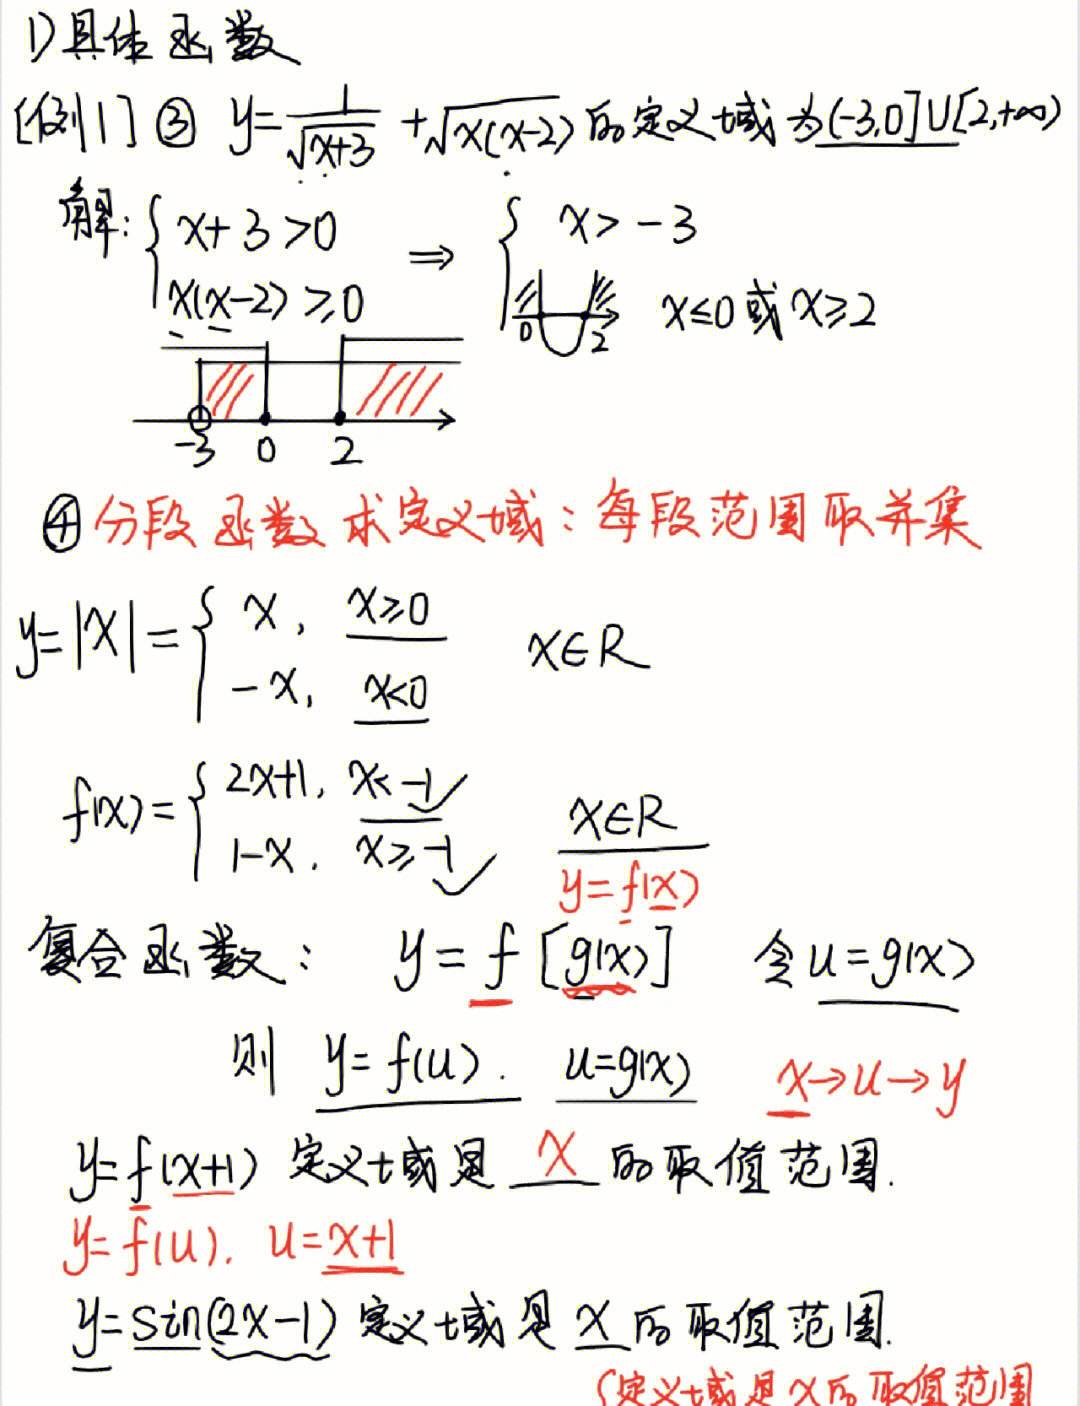 1)具体函数
[例1] ③ y=1/√(x+3) + √(x(x-2)) 的定义域为(-3,0]∪[2,+∞)
解: { x+3>0 ⇒ { x>-3
x(x-2)≥0 0 2 x≤0或x≥2
-3 0 2
④分段函数求定义域：每段范围取并集
y=|x|={ x, x≥0 x∈R
-x, x<0
f(x)={ 2x+1, x<-1 ✓
1-x, x≥-1 ✓ x∈R
y=f(x)
复合函数： y=f[g(x)] 令u=g(x)
则 y=f(u). u=g(x) x→u→y
y=f(x+1) 定义域是 x 的取值范围.
y=f(u). u=x+1
y=sin(2x-1) 定义域是 x 的取值范围.
(定义域是x的取值范围